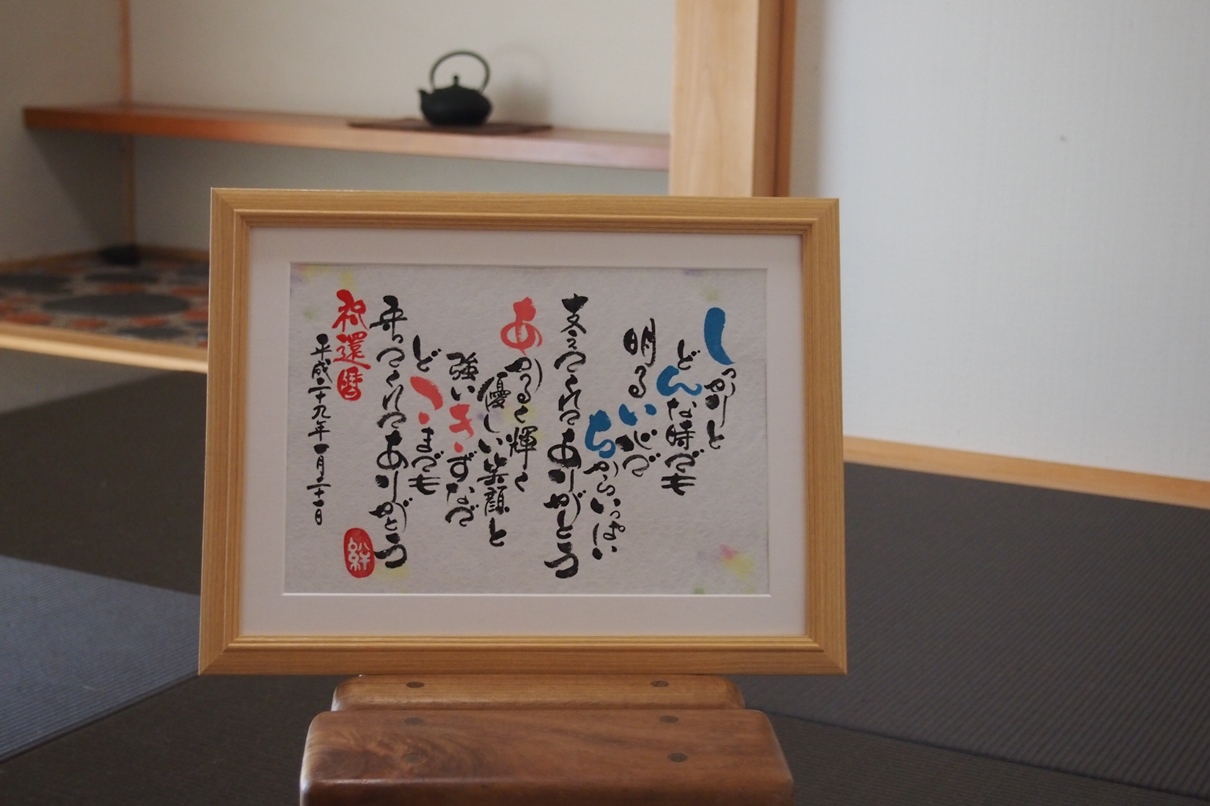 しっかりと
どんな時でも
明るい心で
ちからいっぱい
支えてくれてありがとう
あかるく輝く
優しい笑顔と
強いきずなで
どこまでも
守ってくれてありがとう
祝還暦
平成二十九年一月二十日
絆